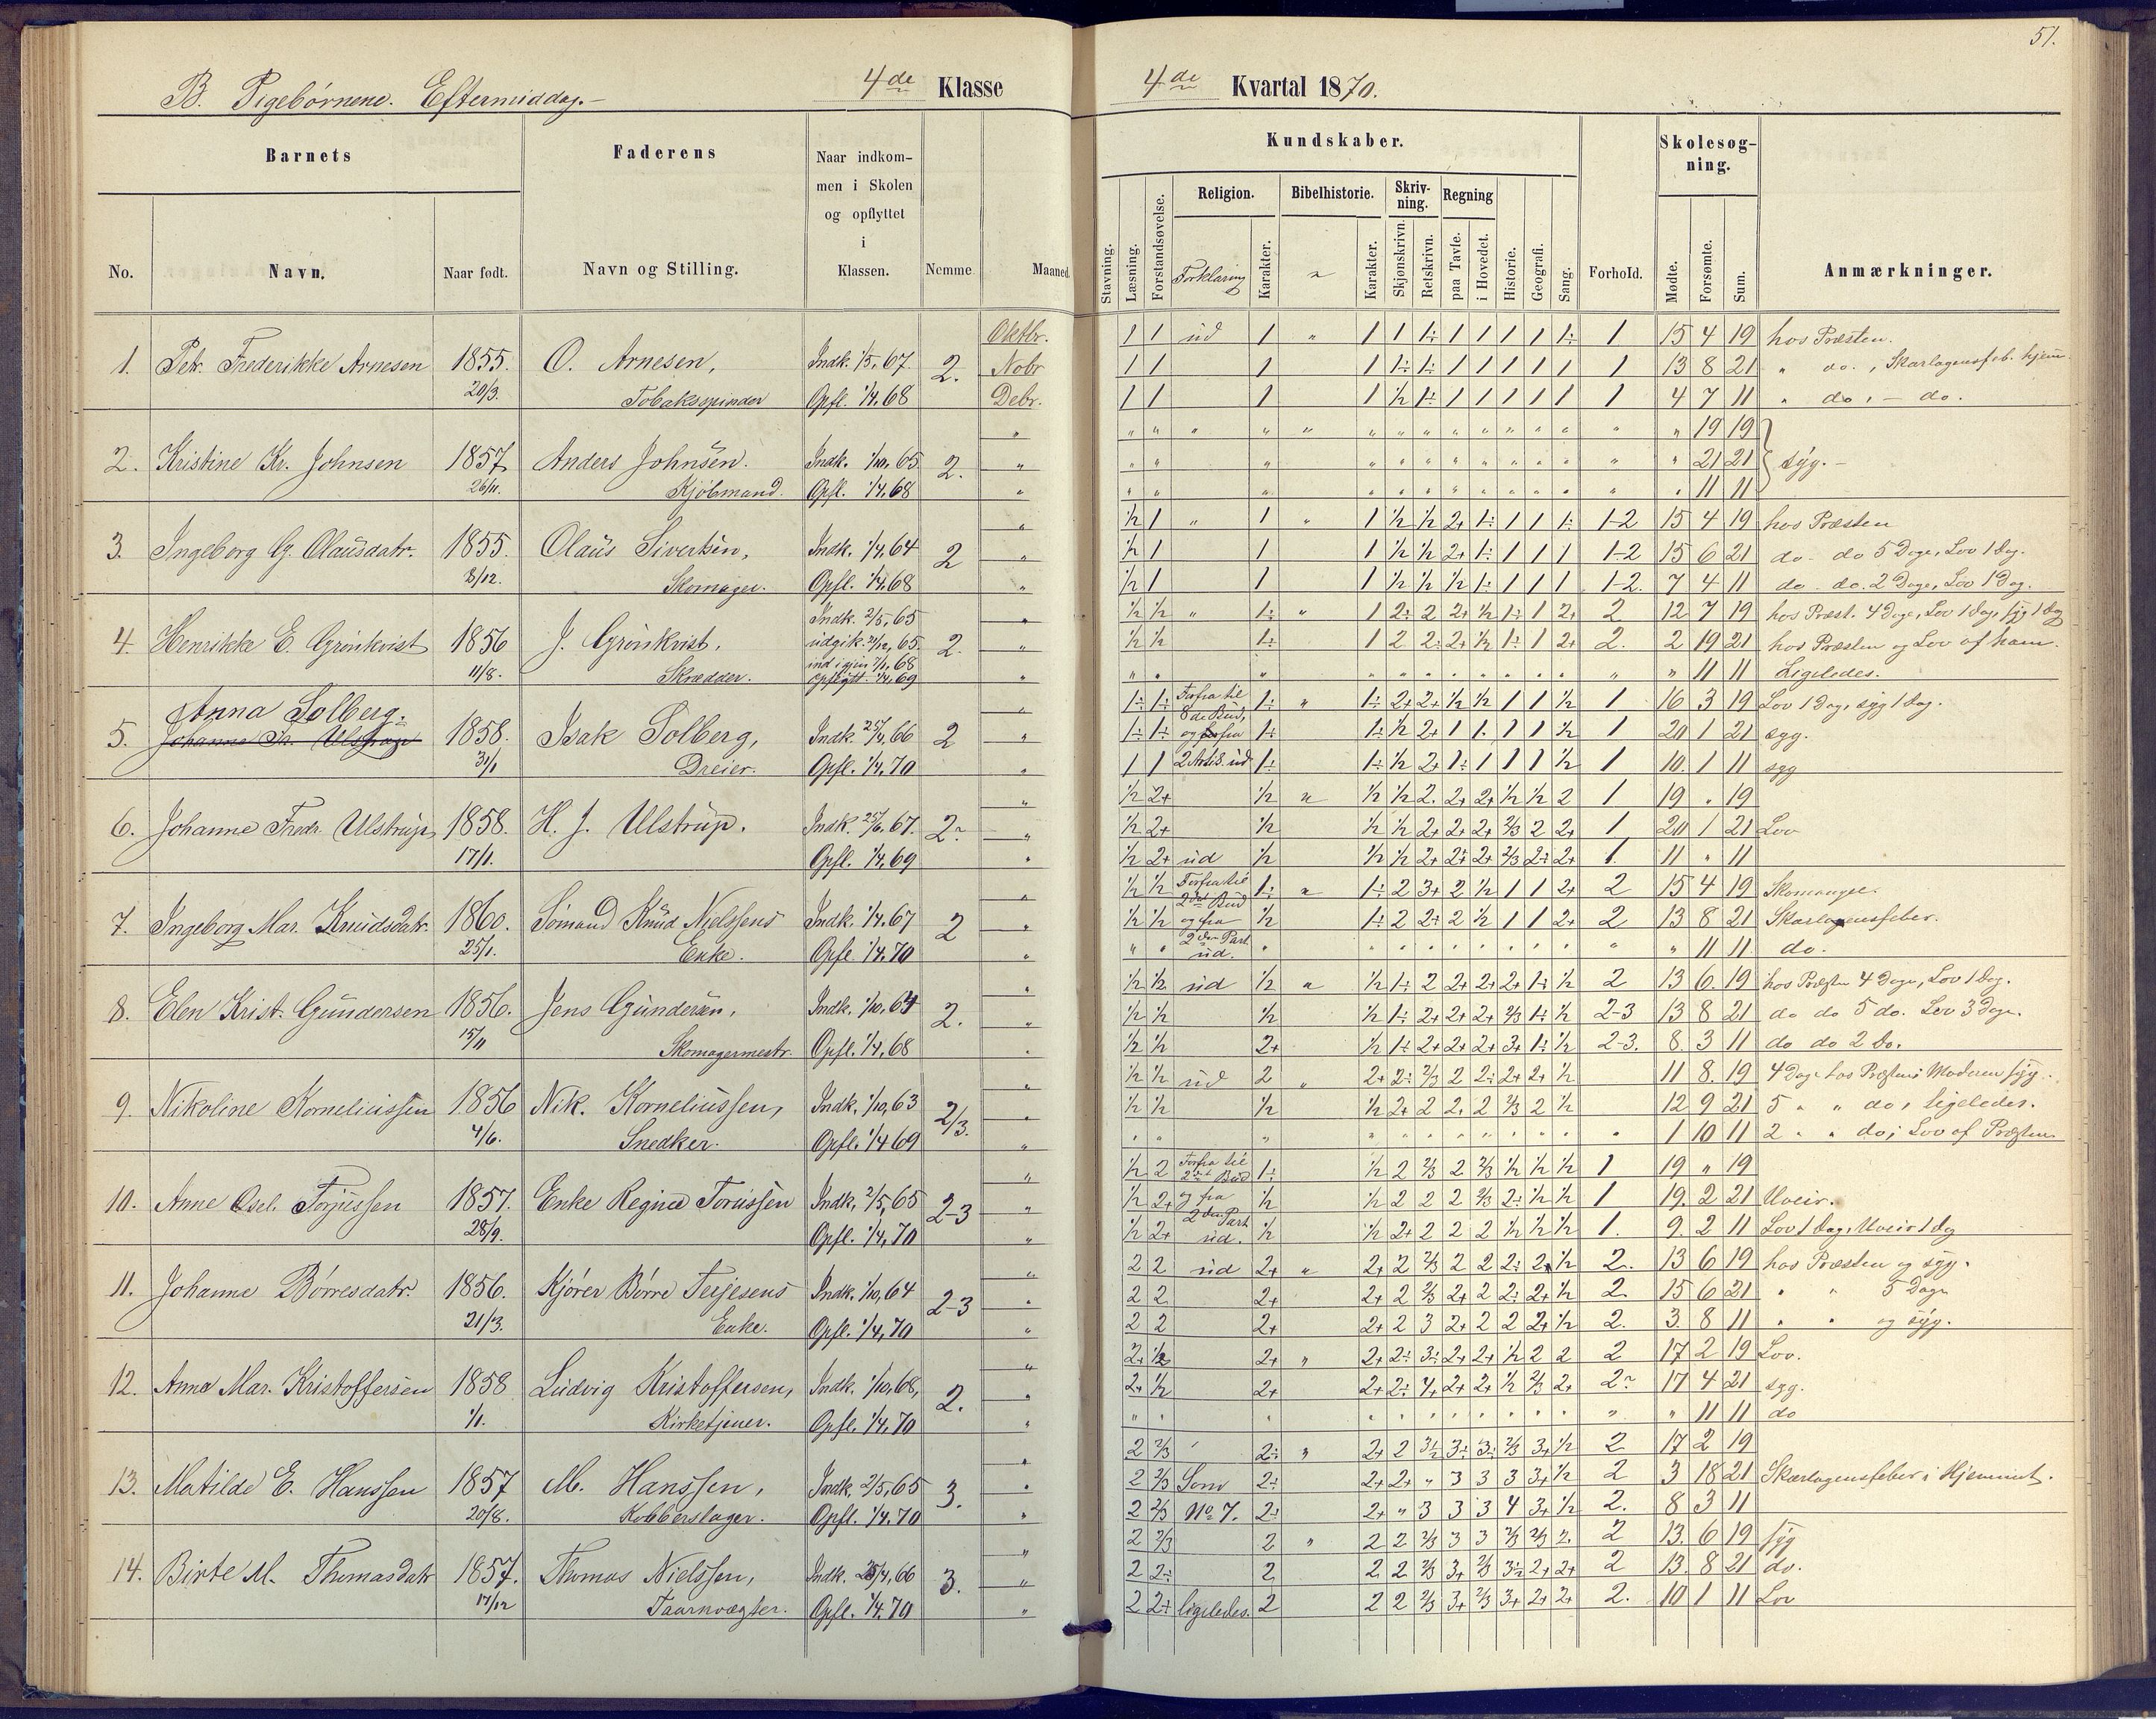 51.
B. Pigebørnene. Eftermiddag.
4de Klasse
4de Kvartal 1870.
Barnets
Faderens
Naar indkommen i Skolen og opflyttet i Klassen.
Nemme
Maaned
Kundskaber.
Forhold.
Skolesøgning.
Anmærkninger.
No.
Navn.
Naar født.
Navn og Stilling.
Stavning.
Læsning.
Forstandsøvelse.
Religion.
Forklaring
Karakter.
Bibelhistorie.
Karakter.
Skrivning.
Skjønskrivn.
Retskrivn.
Regning
paa Tavle.
i Hovedet.
Historie.
Geografi.
Sang.
Mødte.
Forsømte.
Sum.
1. Petr. Frederikke Arnesen 1855. 20/3. O. Arnesen, Tobaksspinder Indk. 1/5.67. Opfl. 1/4.68 2.
Oktbr. 1 1 ud 1 " 1 1 1÷ 1 1 1 1 1÷ 1 15 4 19 hos Præsten.
Nobr 1 1 1 1 1÷ 1÷ 1 1 1 1 1 1 13 8 21 " do., Skarlagensfeb. hjem
Debr. 1 1 1 1 1/2 1÷ 1 1 1 1 1 1 4 7 11 " do. - do.
2. Kristine Kr. Johnsen 1857 26/11. Anders Johnsen. Kjøbmand. Indk. 1/10.65 Opfl. 1/4.68 2.
19 19
21 21 syg.
11 11
3. Ingeborg G. Olausdatr. 1855. 8/12. Olaus Sivertsen, Skomager. Indk. 1/4.64 Opfl. 1/4.68 2
1/2 1 " 1 " 1 1/2 1/2 2+ 1÷ 1 1 1÷ 1-2 15 4 19 hos Præsten
1/2 1 1 1 1/2 1/2 2+ 1÷ 1 1 1 1-2 15 6 21 do - do 5 Dage, Lov 1 Dag.
1/2 1 1 1 1/2 1/2 1/2 1÷ 1 1 1 1-2. 7 4 11 do - do. 2 Dage, Lov 1 Dag.
4. Henrikke E. Grønkvist 1856 11/8. J. Grønkvist, Skrædder. Indk. 2/5.65 udgik. 21/12.65. ind igjen 7/1.68 opflytt. 1/4.69 2.
1/2 1/2 " 1÷ " 1 2÷ 2 2+ 1/2 1÷ 1 2+ 2 12 7 19 hos Præst. 4 Dage, Lov 1 Dag, syg 1 Dag
1/2 1/2 1÷ 1 2 2÷ 2+ 1/2 1÷ 1 2+ 2. 2 19 21 hos Præsten og Lov af ham.
" 11 11 Ligeledes.
5. Anna Solberg. 1858. 31/1 Isak Solberg, Dreier. Indk. 25/4.66 Opfl. 1/4.70 2
1÷ 1÷ Forfra til 1÷ " 1÷ 2+ 2+ 1/2 1/2 1 1 1/2 1 16 3 19 Lov 1 Dag, syg 1 Dag.
8de Bud,
1÷ 1÷ og forfra 1÷ 1÷ 1/2 2+ 1 1 1 1 1/2 1 20 1 21 syg.
1 1 2 Artik. ud 1÷ 1÷ 1/2 2+ 1÷ 1 1 1 1/2 1 10. 1 11 syg
6. Johanne Fredr. Ulstrup 1858. 17/1. H. J. Ulstrup. Indk. 25/6.67. Opfl. 1/4.69 2
1/2 2+ 1/2 " 1/2 1/2 2. 2+ 2+ 1/2 1/2 2 1 19 " 19
1/2 2+ 1/2 1/2 1/2 2+ 2+ 2+ 2/3 2 2+ 1 20 1 21 Lov
1/2 2+ ud 1/2 1/2 1/2 2+ 2+ 2+ 2/3 2÷ 2+ 1. 11 " 11
7. Ingeborg Mar. Knudsdatr. 1860. 25/1. Sømand Knud Nielssens Enke. Indk. 1/4.67 Opfl. 1/4.70 2
1/2 1/2 Forfra til 1÷ " 1÷ 2 3+ 2 1/2 1 1 2+ 2 15 4 19 Skomangel.
2det Bud
1/2 1/2 og fra 1/2 1÷ 2 2÷ 2 1/2 1 1 2+ 2 13 8 21 Skarlagensfeber.
2den Part
ud. 11 11 do.
8. Elen Krist. Gundersen 1856. 15/11 Jens Gundersen, Skomagermestr. Indk. 1/10.64 Opfl. 1/4.68 2.
1/2 1/2 ud 1/2 " 1/2 1÷ 2 2+ 2+ 2+ 1÷ 1/2 2 13 6. 19 hos Præsten 4 Dage, Lov 1 Dag.
1/2 1/2 1/2 1/2 1÷ 2+ 2+ 2+ 2/3 1÷ 1/2 2-3 13 8 21 do do 5 do. Lov 3 Dage.
1/2 1/2 2+ 1/2 1÷ 2+ 2+ 2+ 3+ 1÷ 1/2 2-3. 8 3 11 do do 2 Do.
9. Nikoline Korneliussen 1856 4/6. Nik. Korneliussen, Snedker. Indk. 1/10.63 Opfl. 1/4 69 2/3.
1/2 1/2 ud 2 " 2+ 2÷ 2/3 2 2÷ 2+ 2+ 1/2 11 8. 19 4 Dage hos Præsten; Moderen syg.
1/2 1/2 1/2 1/2 2+ 2 2. 2 2/3 2 1/2 12 9 21 5 " " do, ligeledes.
1 10 11 2 " " do; Lov af Præsten
10. Anne Torjussen 1857. 28/9. Enke Regine Torussen Indk. 2/5.65 Opfl. 1/4.70 2-3
1/2 2 Forfra til 1÷ 1/2 2 2/3 2 2/3 1/2 1/2 1/2 1 19 " 19
2det Bud
1/2 2+ og fra 1/2 1/2 2 2 2 2/3 2÷ 1/2 1/2 1 19. 2 21 Uveir.
2den Part
1/2 2+ ud. 1/2 1/2 2+ 2 2 2 1/2 1/2 1/2 1. 9. 2 11 Lov 1 Dag, Uveir 1 Dag
11. Johanne Børresdatr. 1856. 21/3. Kjører Børre Terjesens Enke. Indk. 1/10.64 Opfl. 1/4.70 2-3
2 2 ud 2+ " 2+ 2 2/3 2 2 2÷ 2+ 1/2 2. 13 6 19 hos Præsten og syg.
2 2 2+ 2+ 2 2/3 2+ 2 2÷ 2+ 1/2 2 15 6 21 " " 5 Dage
2 2 2+ 2+ 2 3 2+ 2 2 2+ 1/2 2. 3 8 11 " " og syg.
12. Anna Mar. Kristoffersen 1858 1/1. Ludvig Kristoffersen, Kirketjener. Indk. 1/10.68, Opfl. 1/4.70 2.
2+ 1/2 2+ " 2+ 2÷ 3÷ 2+ 2+ 1/2 2 2 2 17 2 19 Lov.
2+ 1/2 2+ 2+ 2÷ 4+ 2+ 2+ 1/2 2/3 2+ 2 17 4 21 syg.
11 11 do
13. Matilde E. Hanssen 1857 20/8. M. Hanssen, Kobberslager. Indk. 2/5.65 Opfl. 1/4.70 3.
2 2/3 2÷ " 2+ 2 3½ 3÷ 3÷ 2/3 3+ 1/2 2 17 2 19
2 2/3 Som 2÷ 2+ 2+ " 3 3 3 3+ 1/2 2 3 18 21 Skarlagensfeber i Hjemmet.
2 2/3 No 7. 2÷ 2+ " 3 3 3 4 3+ 1/2 2. 8 3 11
14. Birte M. Thomasdatr 1857. 17/12 Thomas Nielssen, Taarnvægter. Indk. 25/4.66 Opfl. 1/4.70 3.
2 2/3 2 " 2 2 2/3 3 3 2/3 2/3 2 2 13. 6 19 syg
2 2÷ 2 2 2 2/3 3+ 2/3 3½ 2+ 2+ 2 13. 8 21 do.
2 2+ ligeledes. 2 2 2 2/3 3+ 2/3 3+ 2+ 2+ 2. 10 1 11 Lov